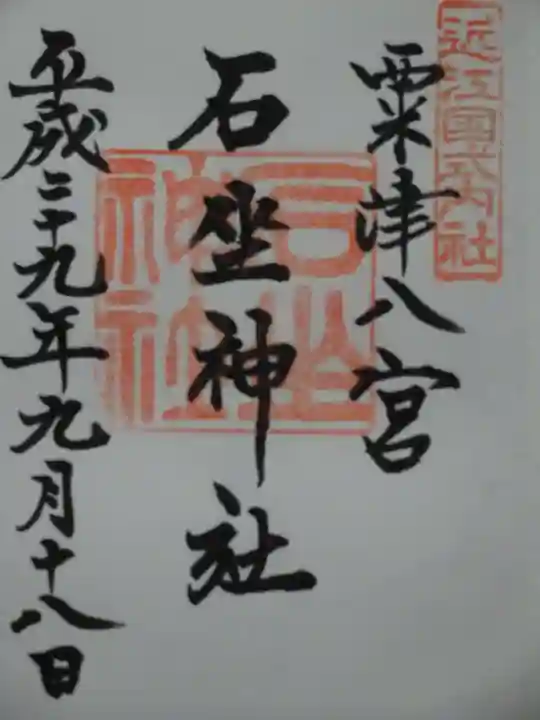 近江國式内社
粟津八宮
石坐神社
石坐神社
平成二十九年九月十八日